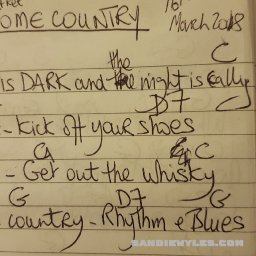 16
OME COUNTRY March 2018
the C
is DARK and the night is cally
D7 C
- kick off your shoes
G C
- Get out the whisky
G D7 G
country - Rhythm e Blues
SANDIEWYLES.COM